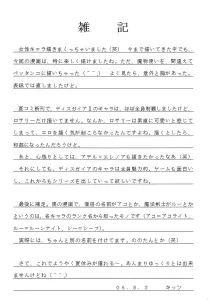 雑　記
女性キャラ描きまくっちゃいました（笑）　今まで描いてきた中でも、
今回の漫画は、特に楽しく描けましたね。ただ、魔物使いを、間違えて
ペッタンコに描いちゃった（^^;）　よく見たら、意外と胸があった。
表紙では直しましたけど。
夏コミ新刊で、ディスガイア２のキャラは、ほぼ全員制覇しましたけど、
ロザリーだけ描いてません。なんか、ロザリーは装飾が可愛らしと感じて
しまって、エロを描く気が起こらなかったんですよね。描くとしたら、
和姦になるかなぁ。
あと、心残りとしては、アデル×エレノアも描きたかったなあ（笑）
それにしても、ディスガイアのキャラは全員魅力的。ゲームも面白い
し、これからもシリーズを出していって欲しいですね。
最後に補足。僕の漫画で、僧侶の名前がアコとか、魔法剣士がルーとか
というのは、各キャラのランク名から取ったモノです（アコ＝アコライト、
ルー＝ルーンナイト、シー＝シーフ）。
実際には、ちゃんと別の名前を付けてます。ののたんとか（笑）
さて、これでようやく夏休みが獲れる～。あんまりゆっくりとは出来
ませんけどね（^^;）
０６．８．３　　　キッツ